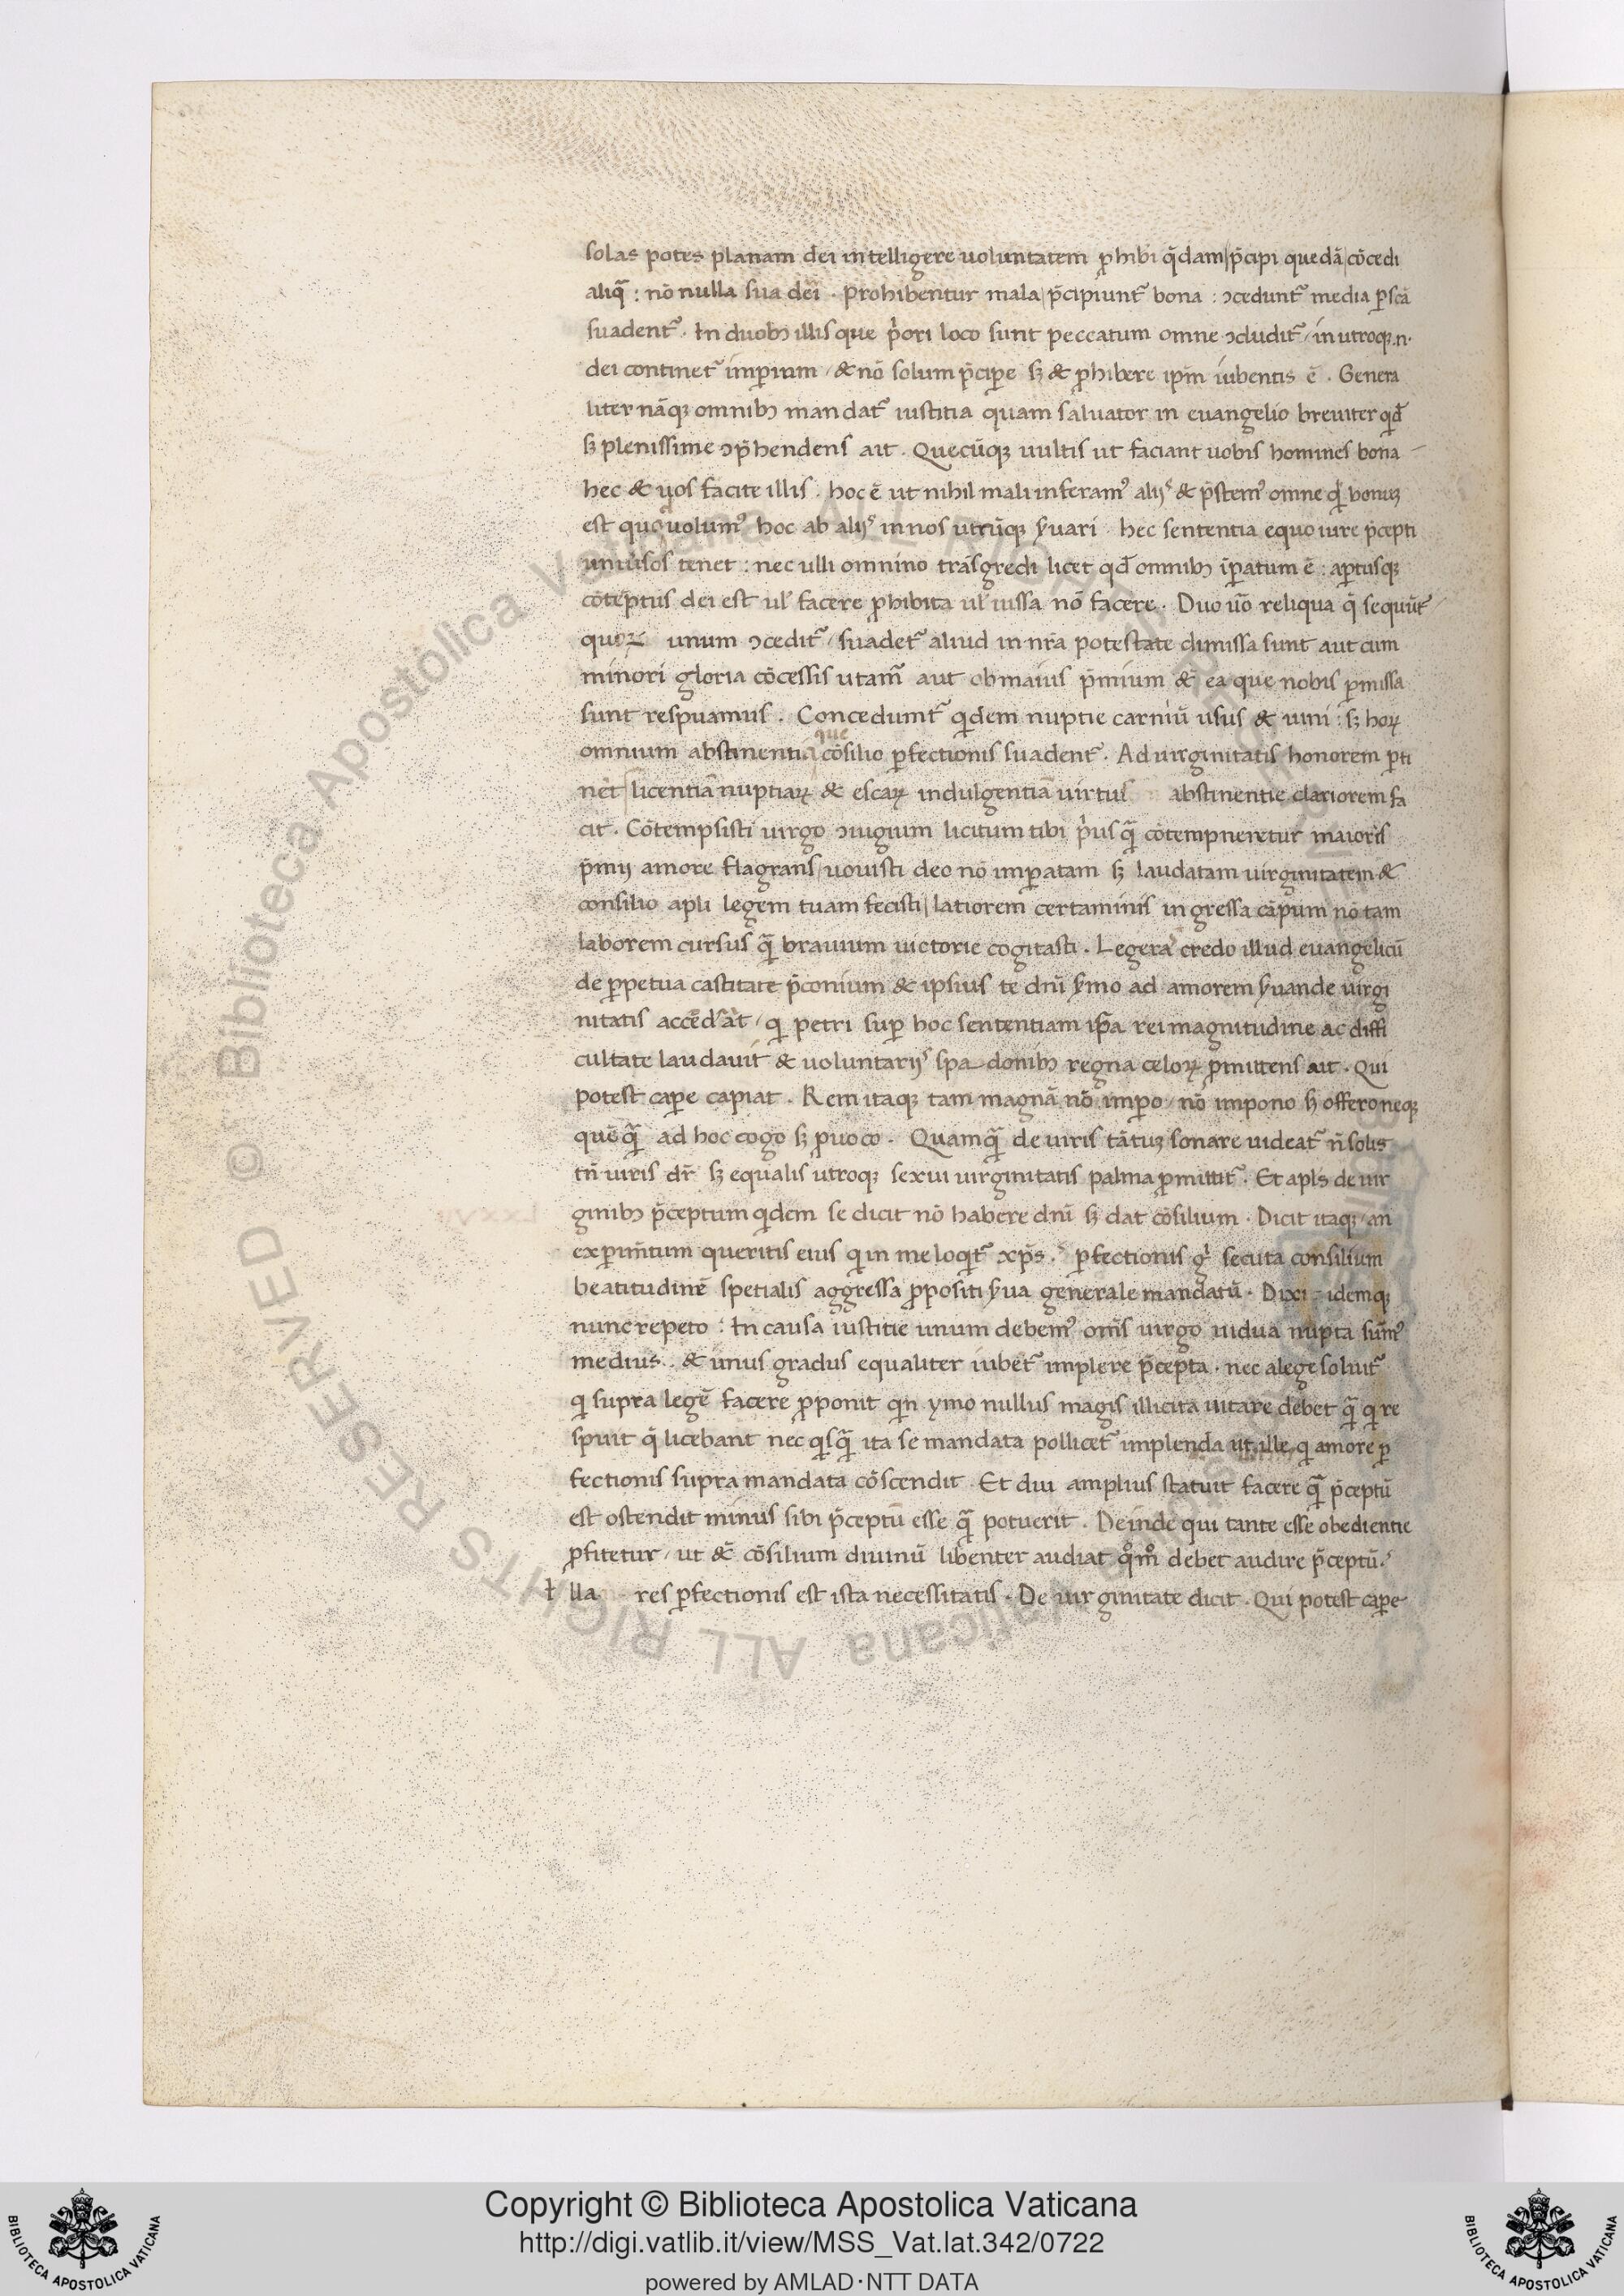 solas potes planam dei intelligere uoluntatem ꝓhibi q̄dam p̄cipi quedā cōcedi
aliq̄ : nō nulla sua dei . prohibentur mala p̄cipiunt᷑ bona : ɔcedunt᷑ media ꝑfcā
suadent᷑ . In duobꝫ illis que p̄ori loco sunt peccatum omne ɔcludit᷑ / in utroqꝫ .n.
dei continet᷑ imꝑium / & nō solum p̄ciꝑe sꝫ & ꝓhibere ip̄m iubentis ē . Genera
liter nāqꝫ omnibꝫ mandat᷑ iustitia quam saluator in euangelio breuiter qđ
sꝫ plenissime ɔp̄hendens ait . Quecūqꝫ uultis ut faciant uobis homines bona
hec & uos facite illis . hoc ē ut nihil mali inferamꝰ alijs & p̄stemꝰ omne qđ bonuꝫ
est quo uolumꝰ hoc ab alijs in nos utrūqꝫ ẜuari . hec sententia equo iure p̄cepti
uniuẜos tenet : nec ulli omnino trāsgredi licet qđ omnibꝫ īꝑatum ē : aꝑtusqꝫ
cōtēptus dei est ul̄ facere ꝓhibita ul̄ iussa nō facere . Duo uo̅ reliqua q̄ sequūt᷑
quoꝝ unum ɔcedit᷑ / suadet᷑ aliud in nr̄a potestate dimissa sunt aut cum
minori gloria cōcessis utam᷑ aut ob maius p̄mium & ea que nobis ꝑmissa
sunt respuamus . Concedunt᷑ qͥdem nuptie carniū usus & uini : sꝫ hoꝝ
omnium abstinentia que cōsilio ꝑfectionis suadent᷑ . Ad uirginitatis honorem ꝑti
net licentiā nuptiaꝝ & escaꝝ indulgentiā uirtus abstinentie clariorem fa
cit . Cōtempsisti uirgo ɔiugium licitum tibi pͥus q̄ cōtempneretur maioris
p̄mij amore flagrans uouisti deo nō imꝑatam sꝫ laudatam uirginitatem &
consilio apl̄i legem tuam fecisti latiorem certaminis ingressa cāpum nō tam
laborem cursus q̄ brauium uictorie cogitasti . Legeras credo illud euangelicū
de ꝑpetua castitate p̄conium & ipsius te dn̄i ẜmo ad amorem ẜuande uirgi
nitatis accēdat / qͥ petri suꝑ hoc sententiam ip̄a rei magnitudine ac diffi
cultate laudauit & uoluntarijs spadonibꝫ regna celoꝝ ꝓmittens ait . Qui
potest caꝑe capiat . Rem itaqꝫ tam magnā nō imꝑo / nō impono sꝫ offero neqꝫ
quēq̄ ad hoc cogo sꝫ ꝓuoco . Quamq̄ de uiris tātuꝫ sonare uideat᷑ n̄ solis
tn̄ uiris dr̄ sꝫ equalis utroqꝫ sexui uirginitatis palma ꝓmittit᷑ . Et apl̄s de uir
ginibꝫ p̄ceptum qͥdem se dicit nō habere dn̄i sꝫ dat cōsilium . Dicit itaqꝫ / an
exꝑim̄tum queritis eius qͥ in me loqͥt᷑ xp̄s . ꝑfectionis gͥ secuta consilium
beatitudinē spetialis aggressa ꝓpositi ẜua generale mandatū . Dixi idemqꝫ
nunc repeto : In causa iustitie unum debemꝰ om̄s uirgo uidua nupta sum̄ꝰ
medius . & unus gradus equaliter iubet᷑ implere p̄cepta . nec a lege soluit᷑
qͥ supra legē facere ꝓponit qͥn ymo nullus magis illicita uitare debet q̄ qͥ re
spuit q̄ licebant nec qͥsq̄ ita se mandata pollicet᷑ implenda ut ille qͥ amore ꝑ
fectionis supra mandata cōscendit . Et dui amplius statuit facere q̄ p̄ceptū
est ostendit minus sibi p̄ceptū esse q̄ potuerit . Deinde qui tante esse obedientie
ꝓfitetur / ut & cōsilium diuinū libenter audiat qͦmͦ debet audire p̄ceptū .
i lla res ꝑfectionis est ista necessitatis . De uirginitate dicit . Qui potest caꝑe
Copyright © Biblioteca Apostolica Vaticana
http://digi.vatlib.it/view/MSS_Vat.lat.342/0722
powered by AMLAD·NTT DATA
BIBLIOTECA APOSTOLICA VATICANA
BIBLIOTECA APOSTOLICA VATICANA
© Biblioteca Apostolica Vaticana ALL RIGHTS RESERVED